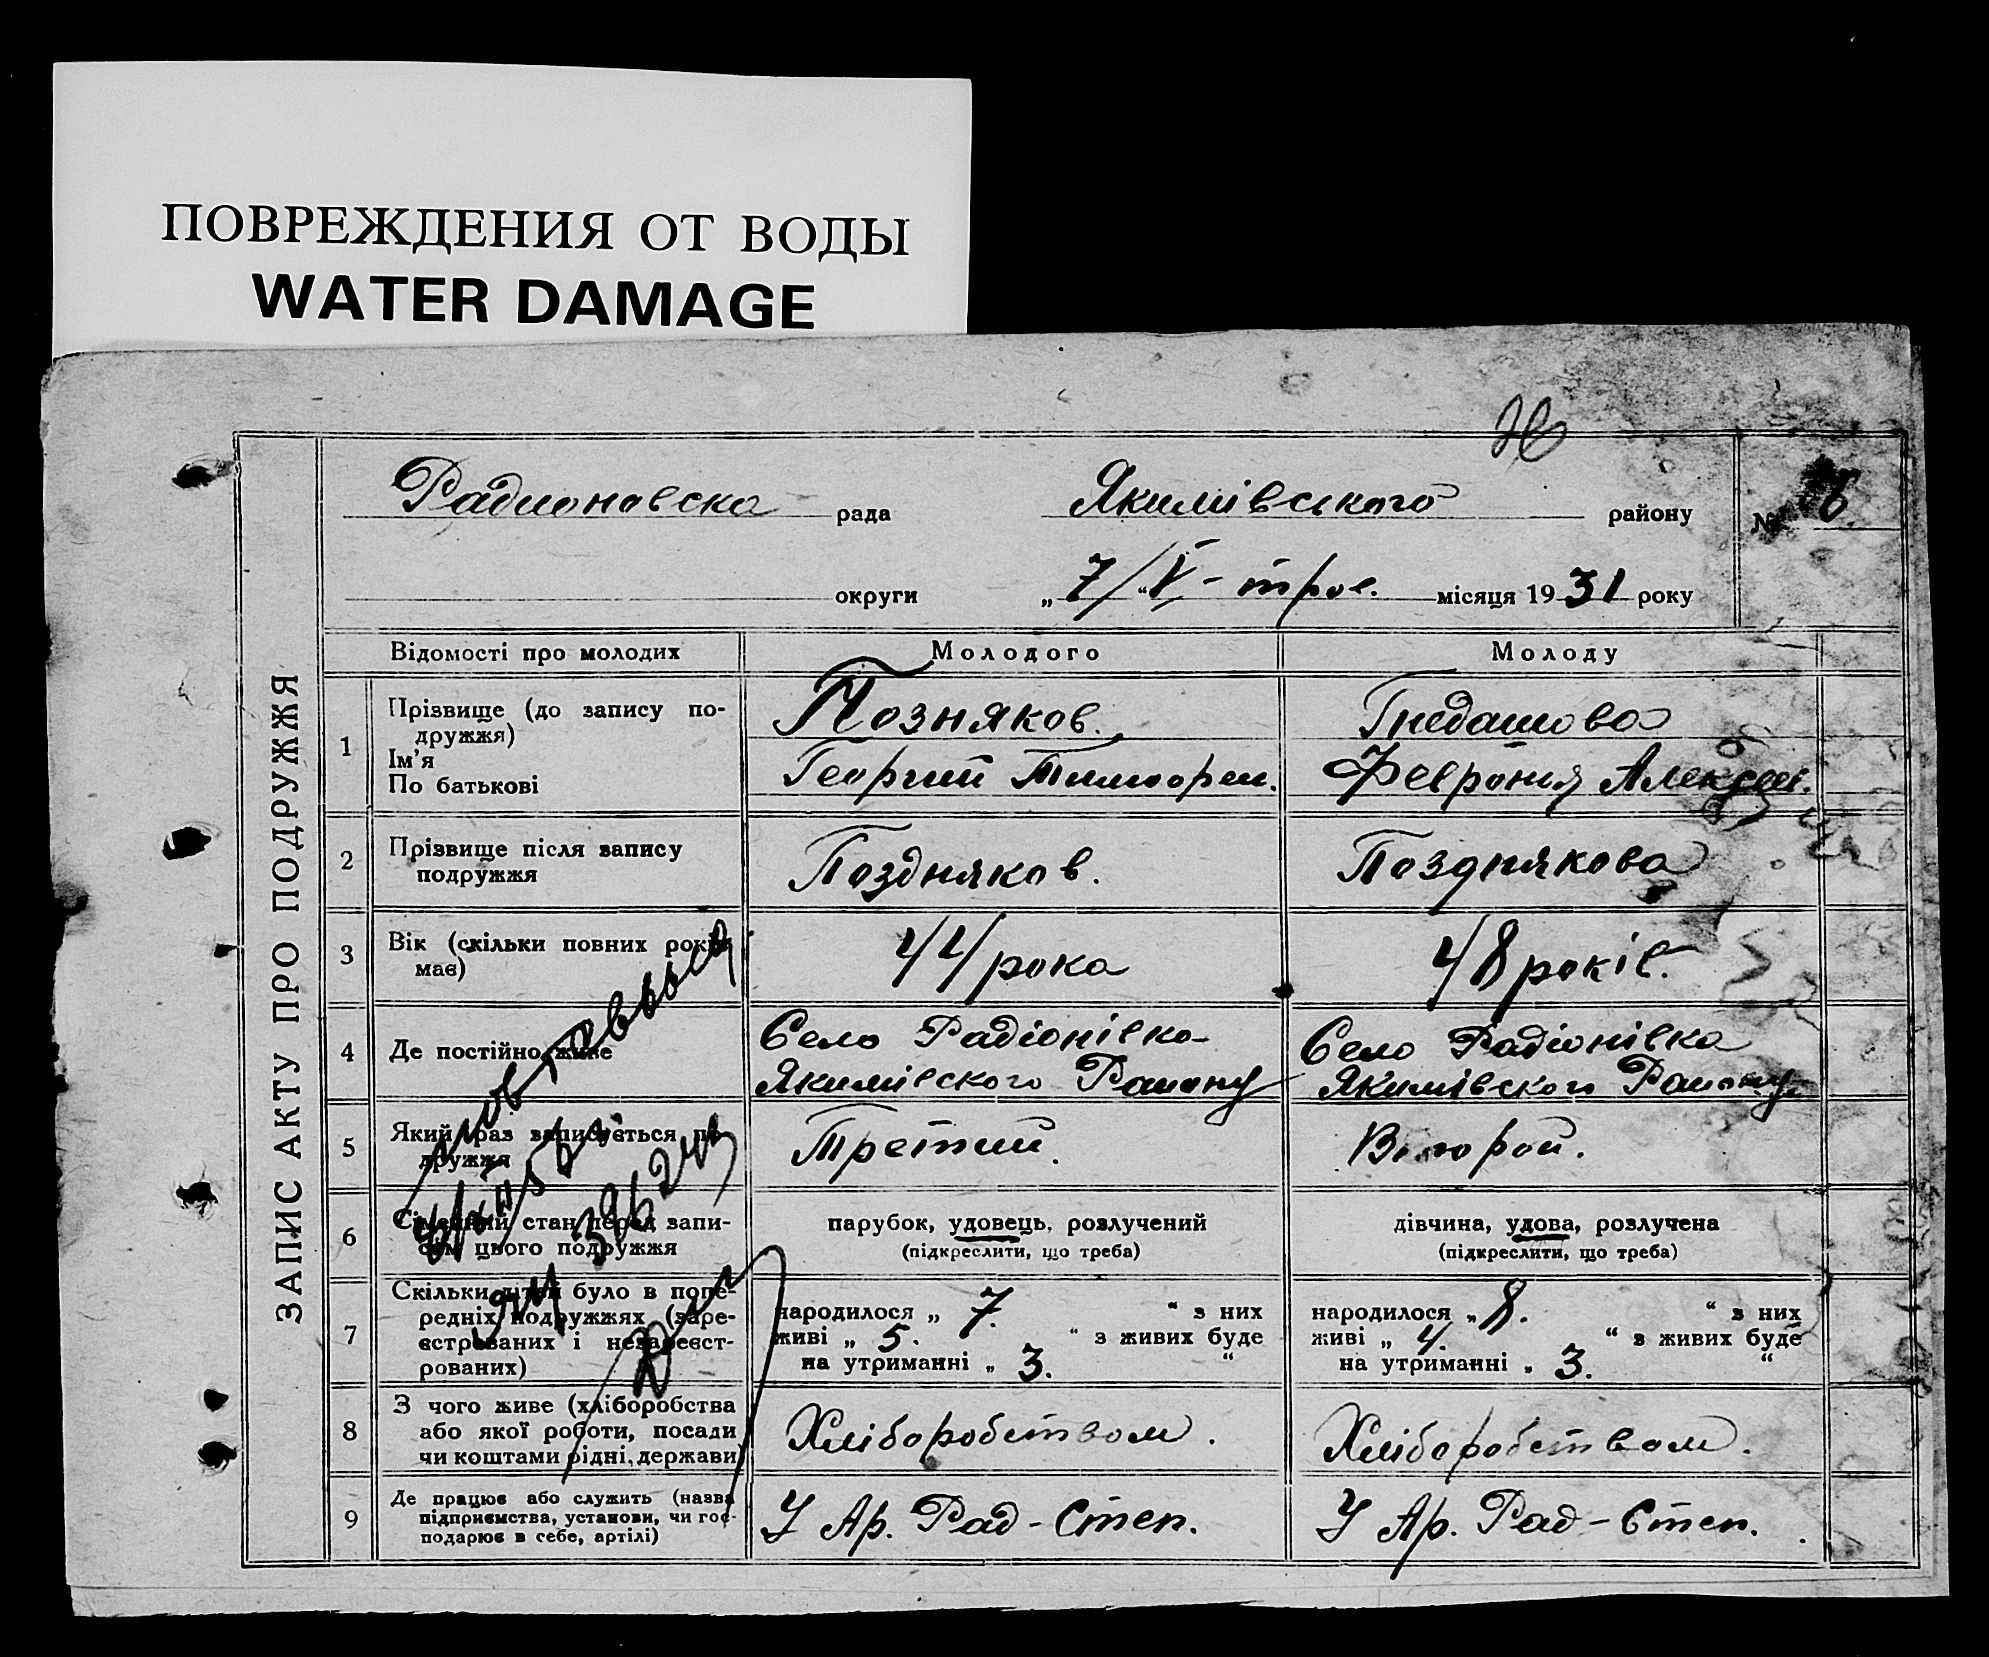 ПОВРЕЖДЕНИЯ ОТ ВОДЫ
WATER DAMAGE
Радионовска рада Якимівського району № 6
округи „7/V“ - трав. місяця 1931 року
ЗАПИС АКТУ ПРО ПОДРУЖЖЯ
Відомості про молодих Молодого Молоду
1 Прізвище (до запису по-
дружжя)
Ім'я
По батькові
Позняков.
Георгий Тимофеи.
Гнедашова
Феврония Алексеев.
2 Прізвище після запису
подружжя
Поздняков.
Позднякова
3 Вік (скільки повних років
має)
44 рока
48 років.
4 Де постійно живе
Село Радіонівка
Якимівского Раиону
Село Радіонівка
Якимівского Раиону
5 Який раз записується по-
дружжя
Третий.
Второй.
6 Сімейний стан перед запи-
сом цього подружжя
парубок, удовець, розлучений
(підкреслити, що треба)
дівчина, удова, розлучена
(підкреслити, що треба)
7 Скільки дітей було в попе-
редніх подружжях (заре-
єстрованих і незареєст-
рованих)
народилося „ 7. “ з них
живі „ 5. “ з живих буде
на утриманні „ 3. “
народилося „ 8. “ з них
живі „ 4. “ з живих буде
на утриманні „ 3. “
8 З чого живе (хліборобства
або якої роботи, посади
чи коштами рідні, держави)
Хліборобством.
Хліборобством.
9 Де працює або служить (назва
підприємства, установи, чи гос-
подарює в себе, артілі)
У Ар. Рад-Степ.
У Ар. Рад-Степ.